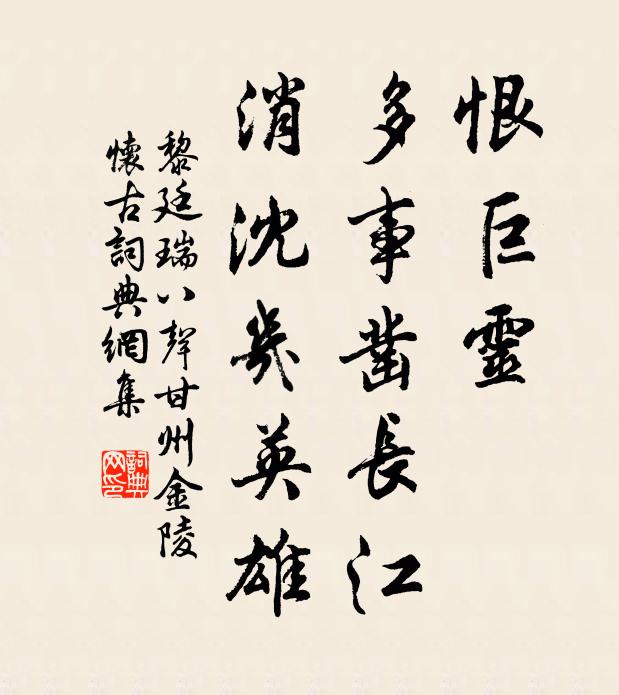 恨巨靈
多事凿長江
消沈幾英雄
黎廷瑞八聲甘州金陵
懷古詞典網集
詞典网印